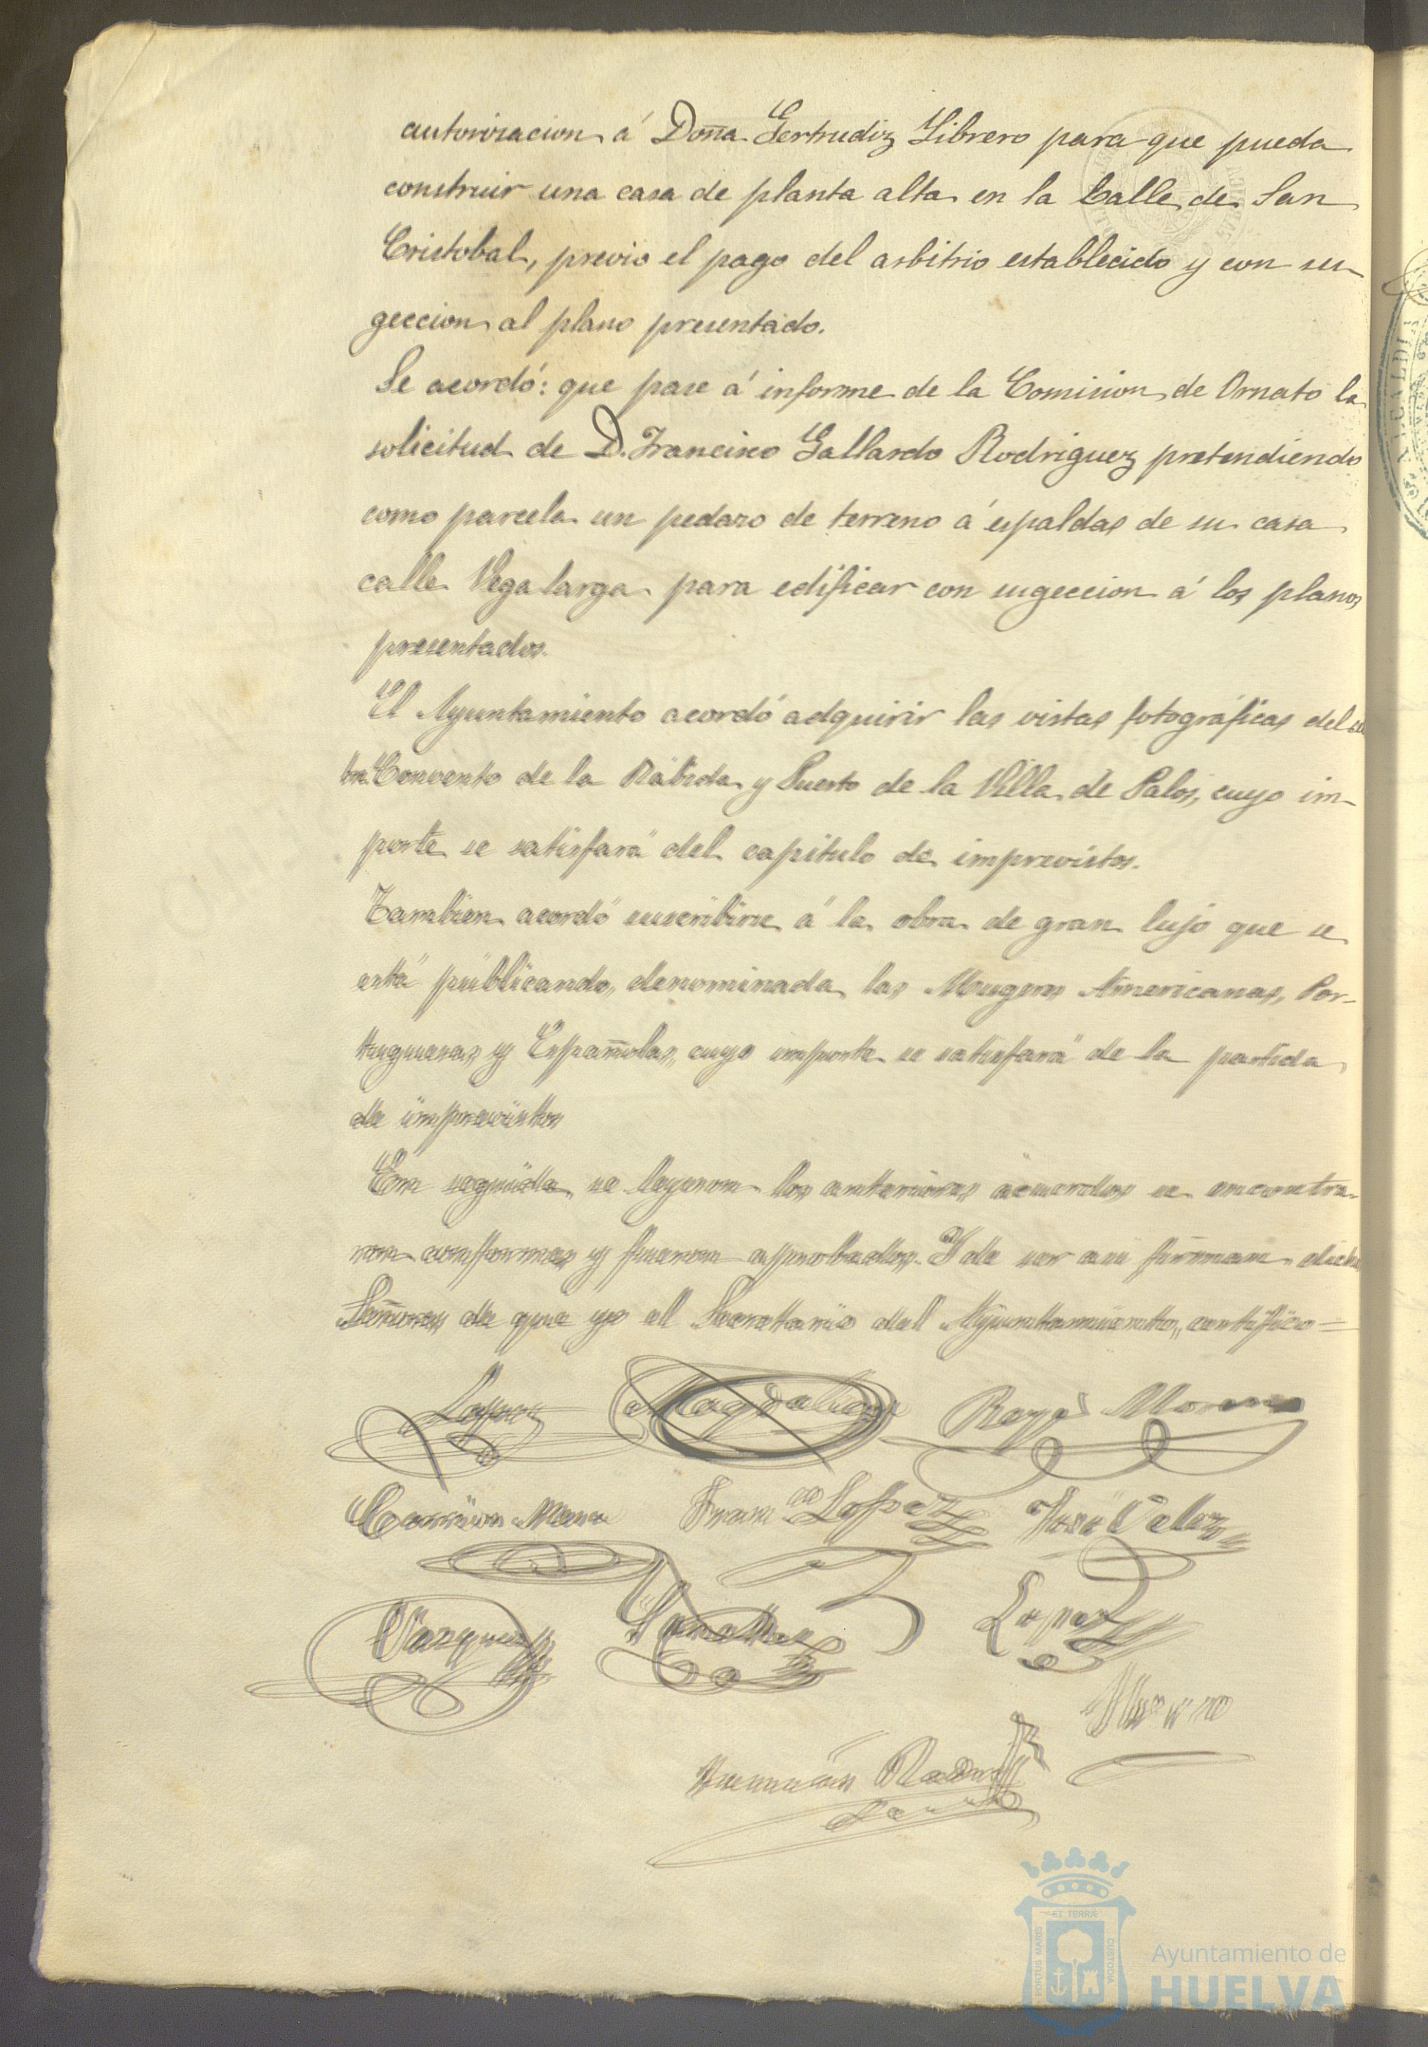 autorizacion á Doña Gertrudiz Librero para que pueda
construir una casa de planta alta en la Calle de San
Cristobal, previo el pago del arbitrio establecido y con su-
geccion al plano presentado.
Se acordó: que pase á informe de la Comision de Ornato la
solicitud de D. Francisco Gallardo Rodriguez pretendiendo
como parcela un pedazo de terreno á espaldas de su casa
calle Vega larga para edificar con sugeccion á los planos
presentados.
El Ayuntamiento acordó adquirir las vistas fotográficas del
Convento de la Rábida y Puerto de la Villa de Palos, cuyo im-
porte se satisfará del capitulo de imprevistos.
Tambien acordó suscribirse á la obra de gran lujo que se
está publicando, denominada las Mugeres Americanas, Por-
tuguesas y Españolas, cuyo importe se satisfará de la partida
de imprevistos
En seguida se leyeron los anteriores acuerdos se encontra-
ron conformes y fueron aprobados. Y de ser asi firman dichos
Señores de que yo el Secretario del Ayuntamiento, certifico=
Lopez
Reyes Moreno
Franco Lopez José Velez
Vazquez
Lopez
ALCALDIA
PORTUS MARIS ET TERRÆ CUSTODIA
Ayuntamiento de
HUELVA